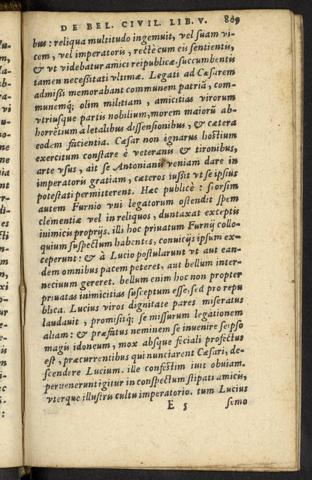 DE BEL. CIVIL. LIB. V. 809
bus: reliqua multitudo ingemuit, vel suam vi-
cem, vel imperatoris, rectè cum eis sentientis,
& vt videbatur amici reipublicæ. succumbentis
tamen necessitati vltimæ. Legati ad Cæsarem
admissi memorabant communem patriā, com-
munemq; olim militiam, amicitias virorum
vtriusque partis nobilium, morem maiorū ab-
horrētium a letalibus dissensionibus, & cætera
eodem facientia. Cæsar non ignarus hostium
exercitum constare è veteranis & tironibus,
arte vsus, ait se Antonianis veniam dare in
imperatoris gratiam, cæteros iussit vt se ipsius
potestati permitterent. Hæc publicè: seorsim
autem Furnio vni legatorum ostendit spem
clementiæ vel in reliquos, duntaxat exceptis
inimicis proprijs. illi hoc priuatum Furnij collo-
quium suspectum habentes, conuicijs ipsum ex-
ceperunt: & à Lucio postularunt vt aut ean-
dem omnibus pacem peteret, aut bellum inter-
neciuum gereret. bellum enim hoc non propter
priuatas inimicitias susceptum esse, sed pro repu
blica. Lucius viros dignitate pares miseratus
laudauit, promisitq; se missurum legationem
aliam: & præfatus neminem se inuenire seipso
magis idoneum, mox absque feciali profectus
est, præcurrentibus qui nunciarent Cæsari, de-
scendere Lucium. ille confestim iuit obuiam.
peruenerunt igitur in conspectum stipati amicis,
vterque illustris cultu imperatorio. tum Lucius
E 5 semo